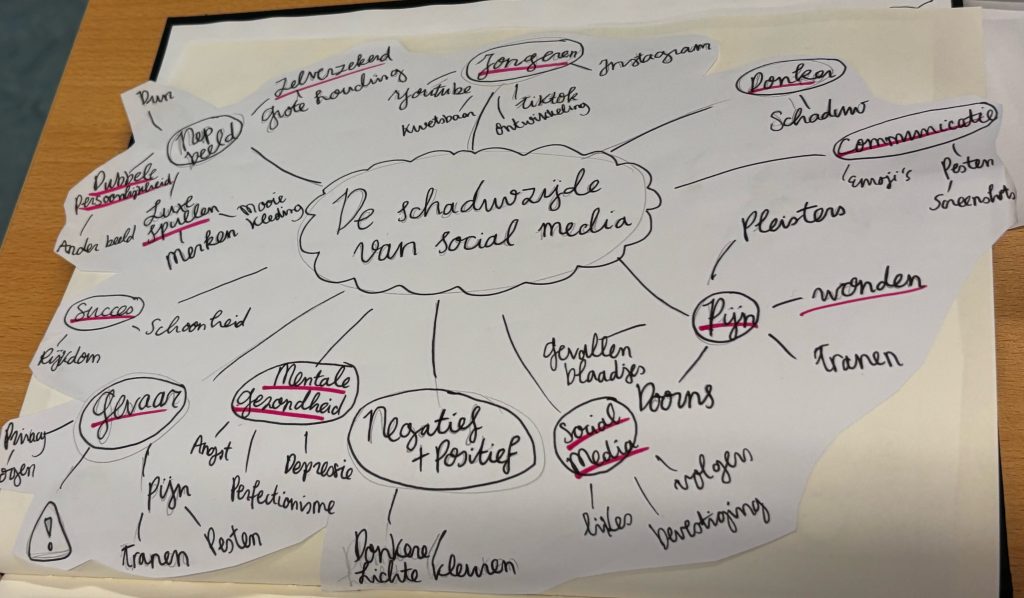 De schaduwzijde
van social media
Jongeren
Youtube
Kwetsbaar
TikTok
ontwikkeling
Instagram
Donker
Schaduw
Communicatie
Emoji's
Pesten
Screenshots
Pijn
Pleisters
wonden
Tranen
Doorns
Social
Media
gevallen
blaadjes
likes
bevestiging
volgers
Negatief
+ Positief
Donkere/
Lichte kleuren
Mentale
gezondheid
Angst
Perfectionisme
Depressie
Gevaar
Privacy
!
Pijn
Tranen
Pesten
Succes
Rijkdom
Schoonheid
Nep
beeld
Zelverzekerd
Grote houding
Dubbele
Persoonlijkheid/
Ander beeld
Luxe
spullen
Merken
Mooie
kleding